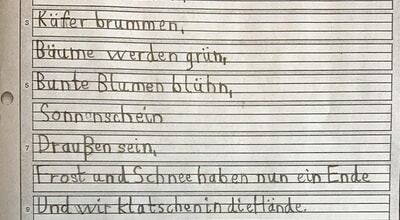 3 Käfer brummen,
Bäume werden grün,
5 Bunte Blumen blühn,
Sonnenschein
7 Draußen sein,
Frost und Schnee haben nun ein Ende
9 Und wir klatschen in die Hände.